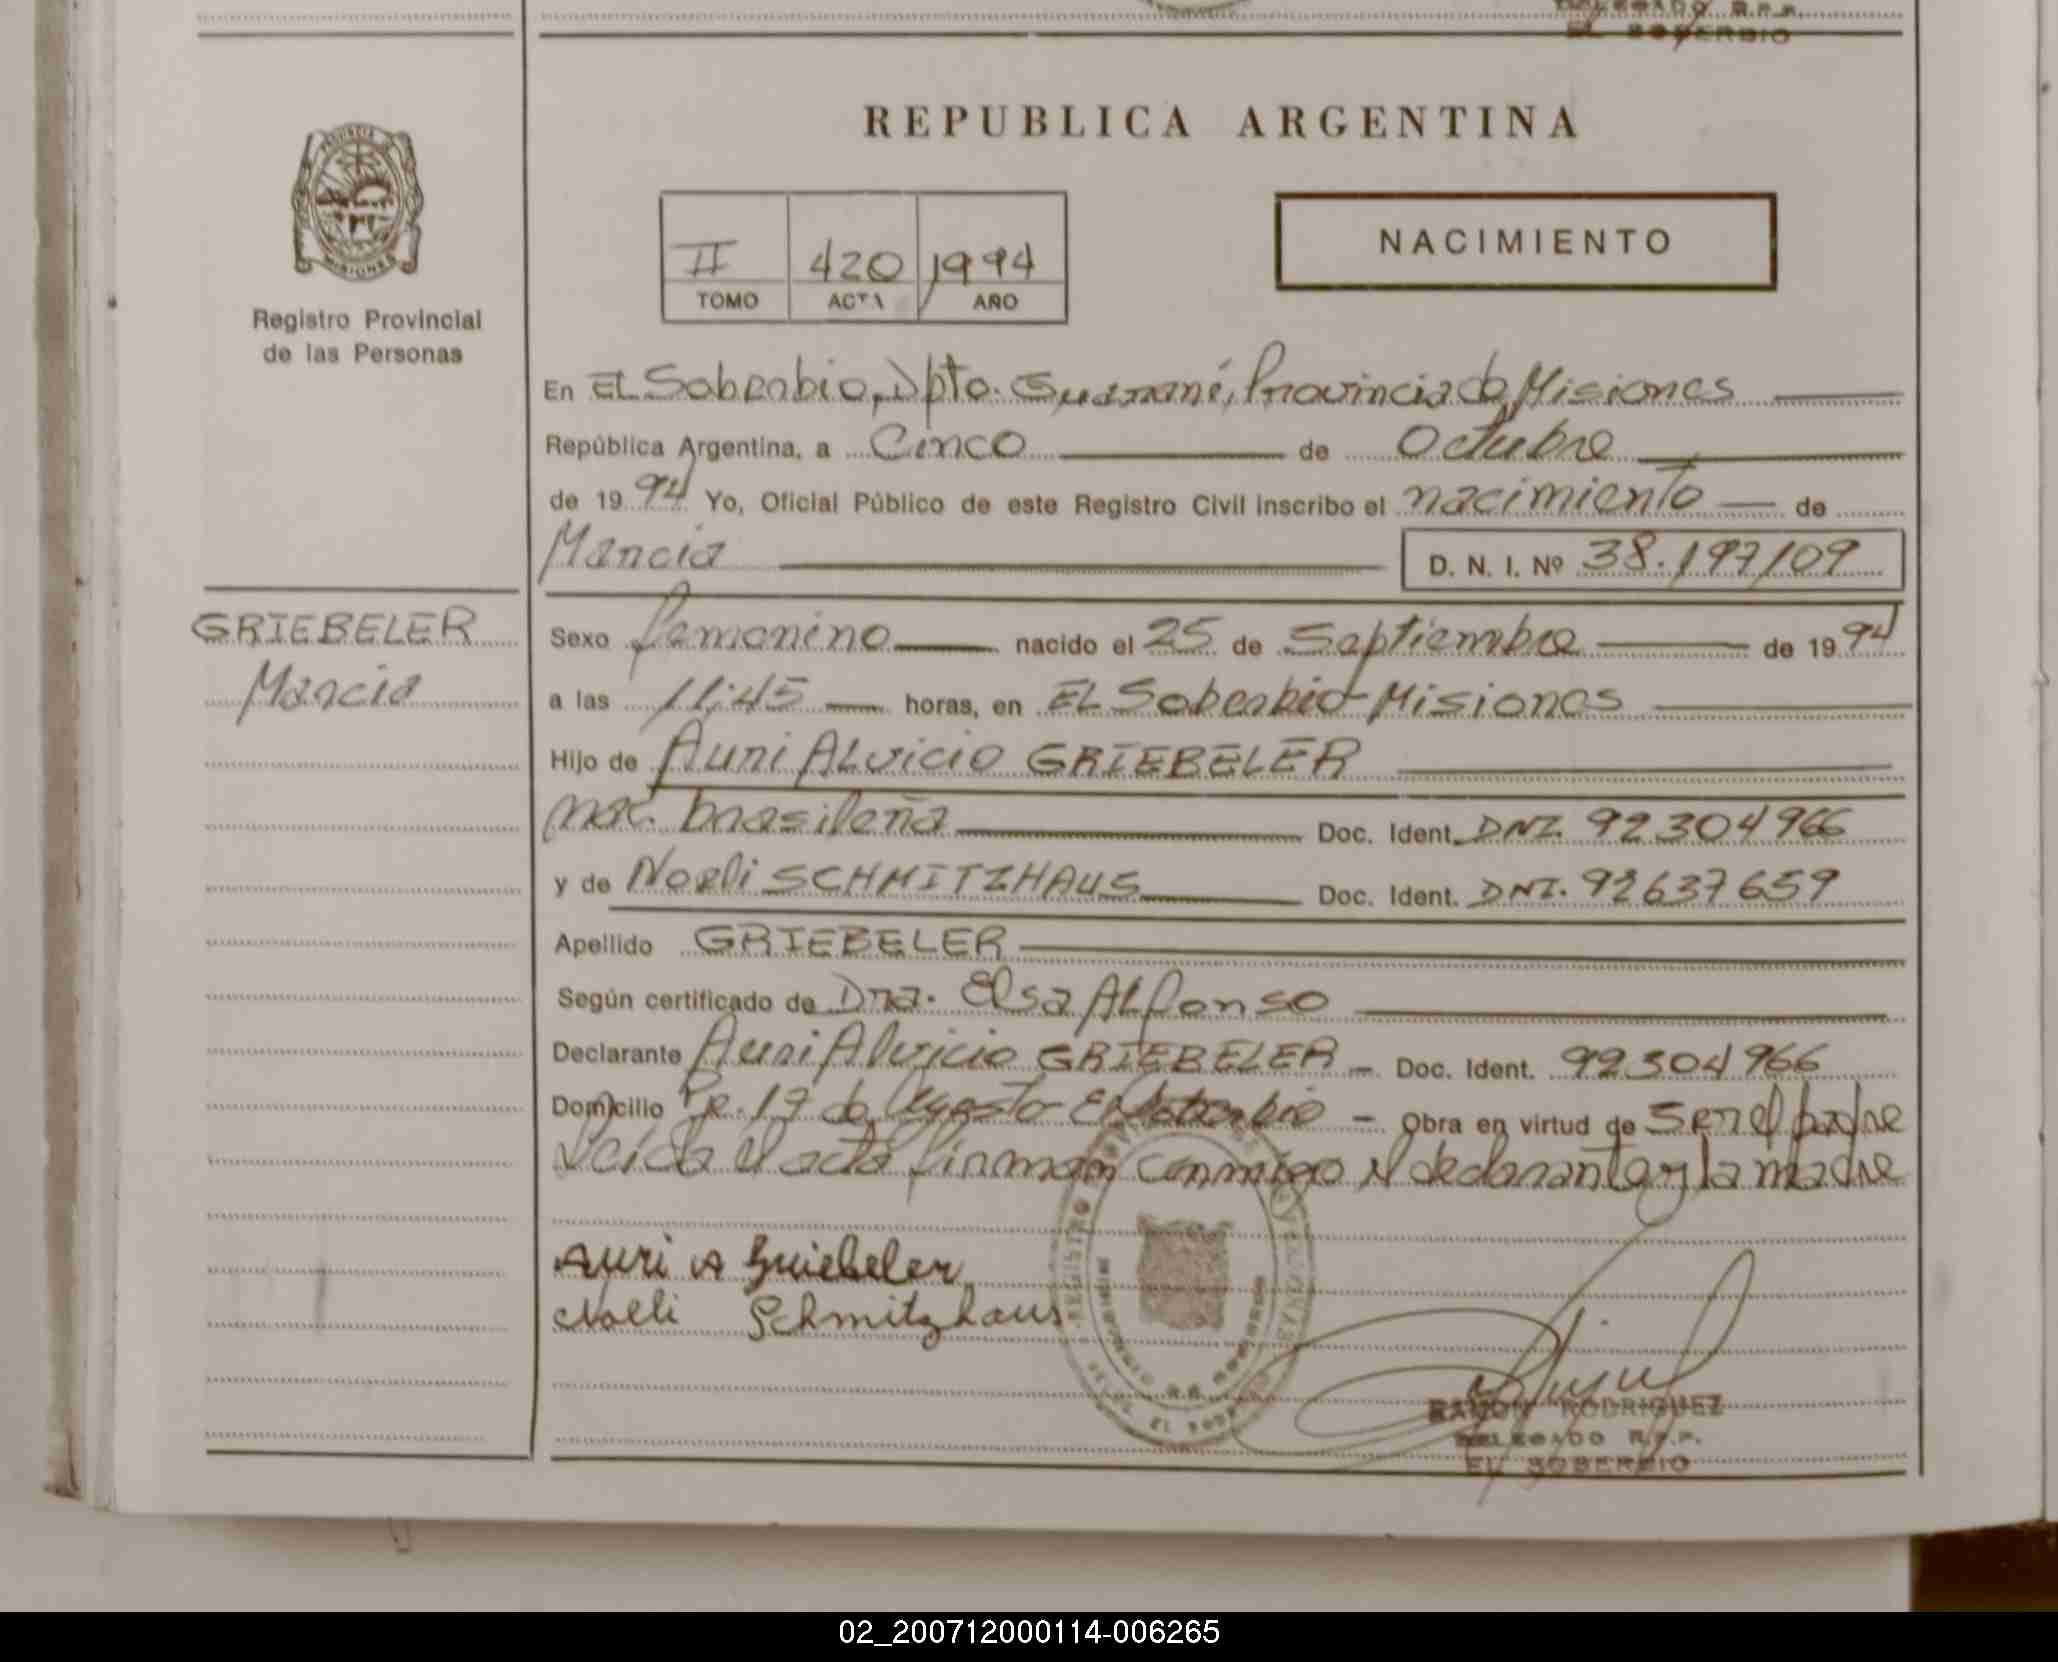 DELEGADO R.P.P.
EL SOBERBIO
REPUBLICA ARGENTINA
II 420 1994
TOMO ACTA AÑO
NACIMIENTO
MISIONES
Registro Provincial
de las Personas
En EL Soberbio, Dpto. Guaraní, Provincia de Misiones
República Argentina, a Cinco de Octubre
de 1994 Yo, Oficial Público de este Registro Civil inscribo el nacimiento de
Marcia D. N. I. Nº 38.197109
GRIEBELER
Marcia
Sexo femenino nacido el 25 de Septiembre de 1994
a las 11:45 horas, en EL Soberbio-Misiones
Hijo de Auri ALvicio GRIEBELER
nac. brasileña Doc. Ident. DNI. 92304966
y de Noeli SCHMITZHAUS Doc. Ident. DNI. 92637659
Apellido GRIEBELER
Según certificado de Dra. Elsa ALfonso
Declarante Auri Alvicio GRIEBELER - Doc. Ident. 92304966
Domicilio 19 de Agosto El Soberbio - Obra en virtud de ser el padre
Leída el acta firman conmigo el declarante y la madre
Auri A Griebeler
Noeli Schmitzhaus
RAMON RODRIGUEZ
DELEGADO R.P.P.
EL SOBERBIO
02_200712000114-006265